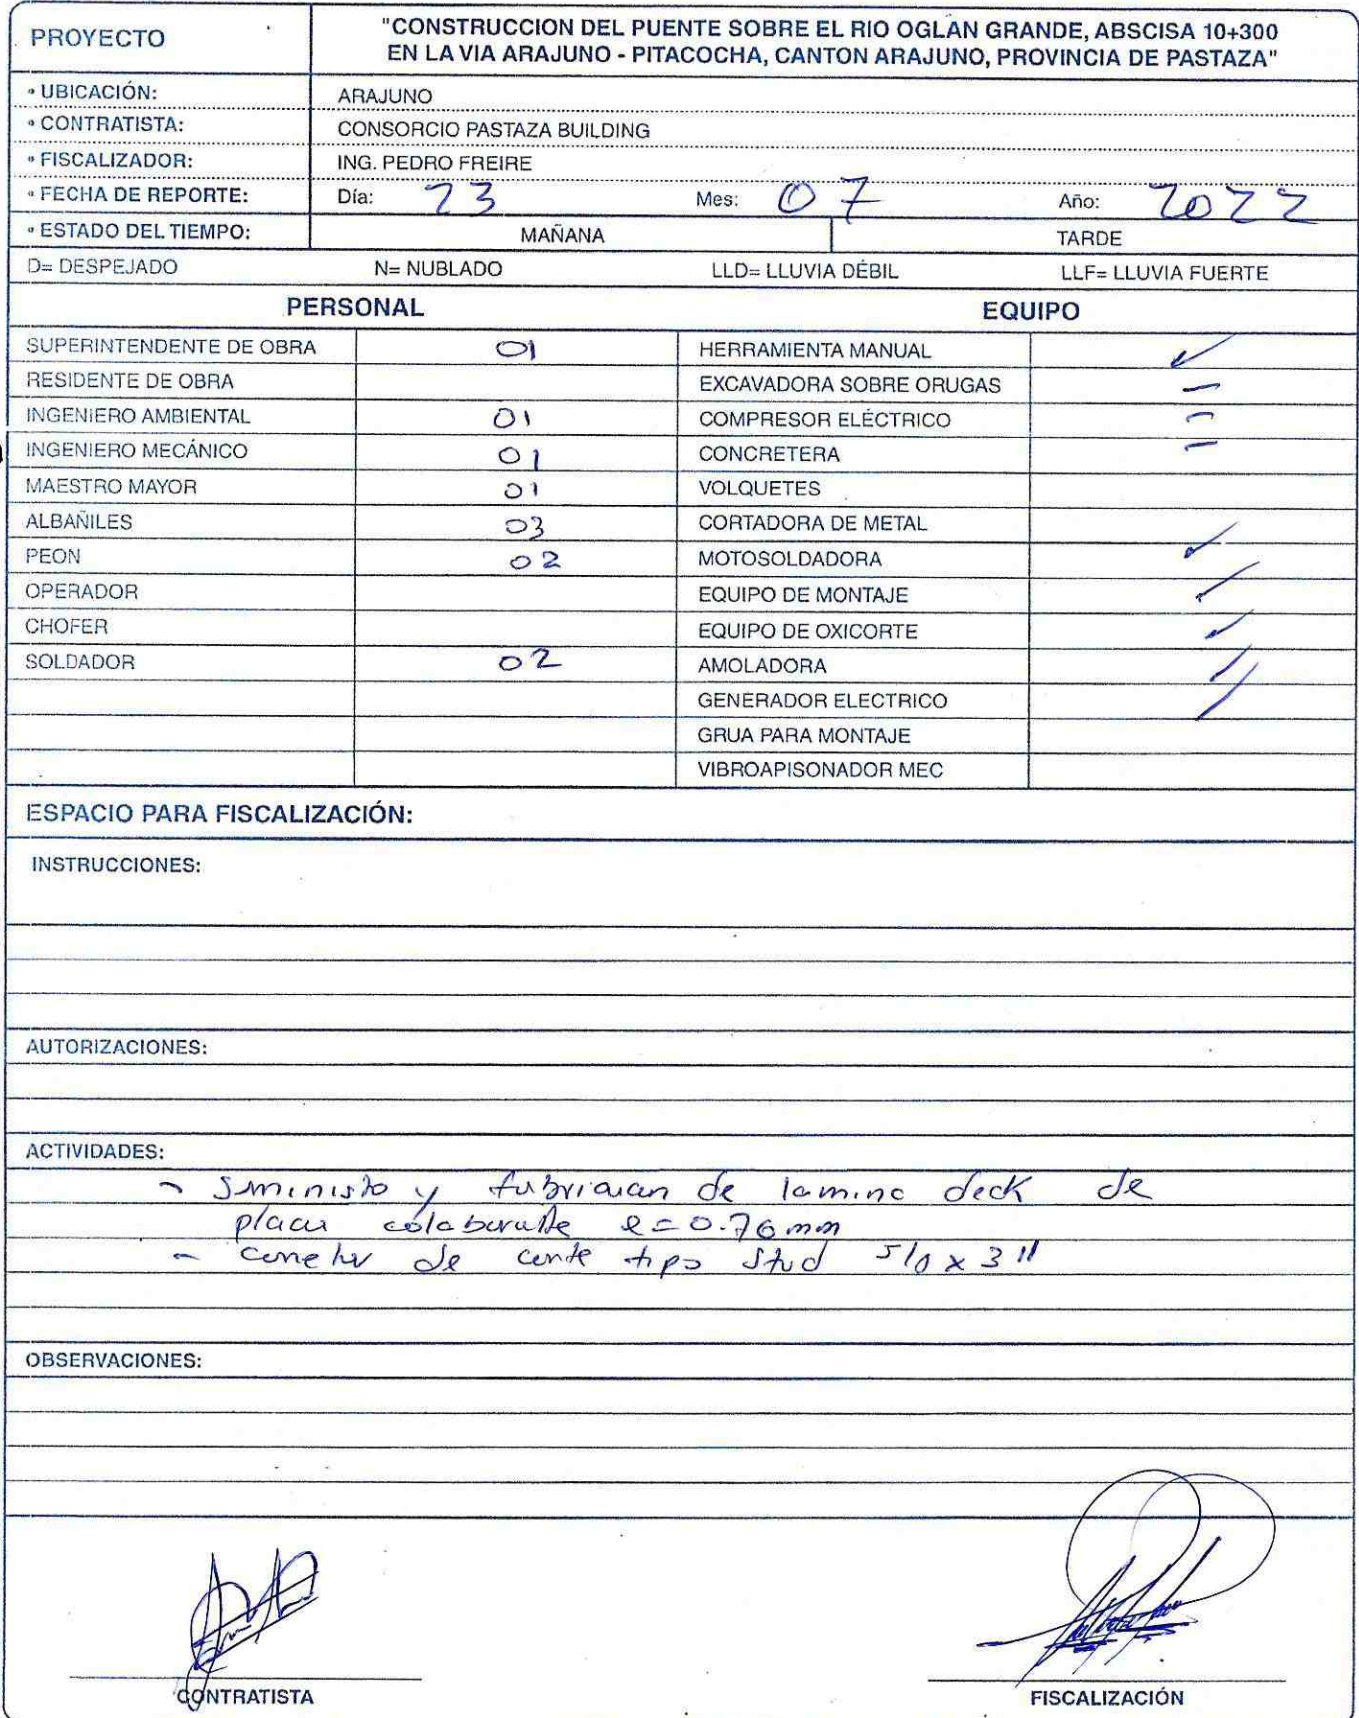 PROYECTO
"CONSTRUCCION DEL PUENTE SOBRE EL RIO OGLAN GRANDE, ABSCISA 10+300
EN LA VIA ARAJUNO - PITACOCHA, CANTON ARAJUNO, PROVINCIA DE PASTAZA"
• UBICACIÓN: ARAJUNO
• CONTRATISTA: CONSORCIO PASTAZA BUILDING
• FISCALIZADOR: ING. PEDRO FREIRE
• FECHA DE REPORTE: Día: 23 Mes: 07 Año: 2022
• ESTADO DEL TIEMPO: MAÑANA TARDE
D= DESPEJADO N= NUBLADO LLD= LLUVIA DÉBIL LLF= LLUVIA FUERTE
PERSONAL EQUIPO
SUPERINTENDENTE DE OBRA 01 HERRAMIENTA MANUAL ✓
RESIDENTE DE OBRA EXCAVADORA SOBRE ORUGAS –
INGENIERO AMBIENTAL 01 COMPRESOR ELÉCTRICO –
INGENIERO MECÁNICO 01 CONCRETERA –
MAESTRO MAYOR 01 VOLQUETES
ALBAÑILES 03 CORTADORA DE METAL
PEON 02 MOTOSOLDADORA ✓
OPERADOR EQUIPO DE MONTAJE ✓
CHOFER EQUIPO DE OXICORTE ✓
SOLDADOR 02 AMOLADORA ✓
GENERADOR ELECTRICO ✓
GRUA PARA MONTAJE
VIBROAPISONADOR MEC
ESPACIO PARA FISCALIZACIÓN:
INSTRUCCIONES:
AUTORIZACIONES:
ACTIVIDADES:
- Suministo y fabricacion de lamina deck de
placa colaborante e=0.76 mm
- conector de corte tipo Stud 5/8 x 3"
OBSERVACIONES:
CONTRATISTA FISCALIZACIÓN